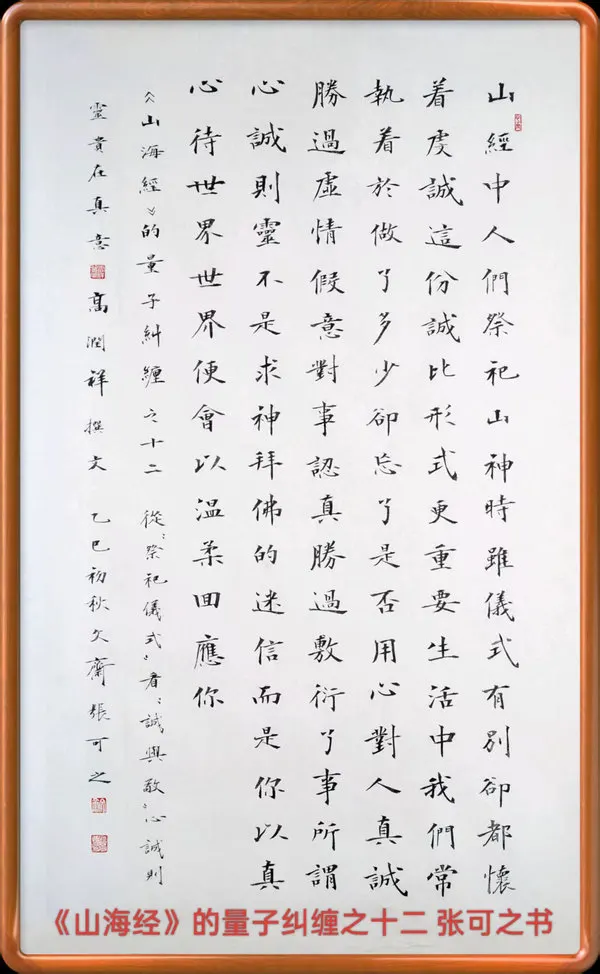 山經中人們祭祀山神時雖儀式有別卻都懷
着虔誠這份誠比形式更重要生活中我們常
執着於做了多少卻忘了是否用心對人真誠
勝過虛情假意對事認真勝過敷衍了事所謂
心誠則靈不是求神拜佛的迷信而是你以真
心待世界世界便會以温柔回應你
《山海經》的量子糾纏之十二 從“祭祀儀式”看“誠與敬”心誠則
靈貴在真意 高潤祥 撰文 乙巳初秋文齋張可之
《山海经》的量子纠缠之十二 张可之书